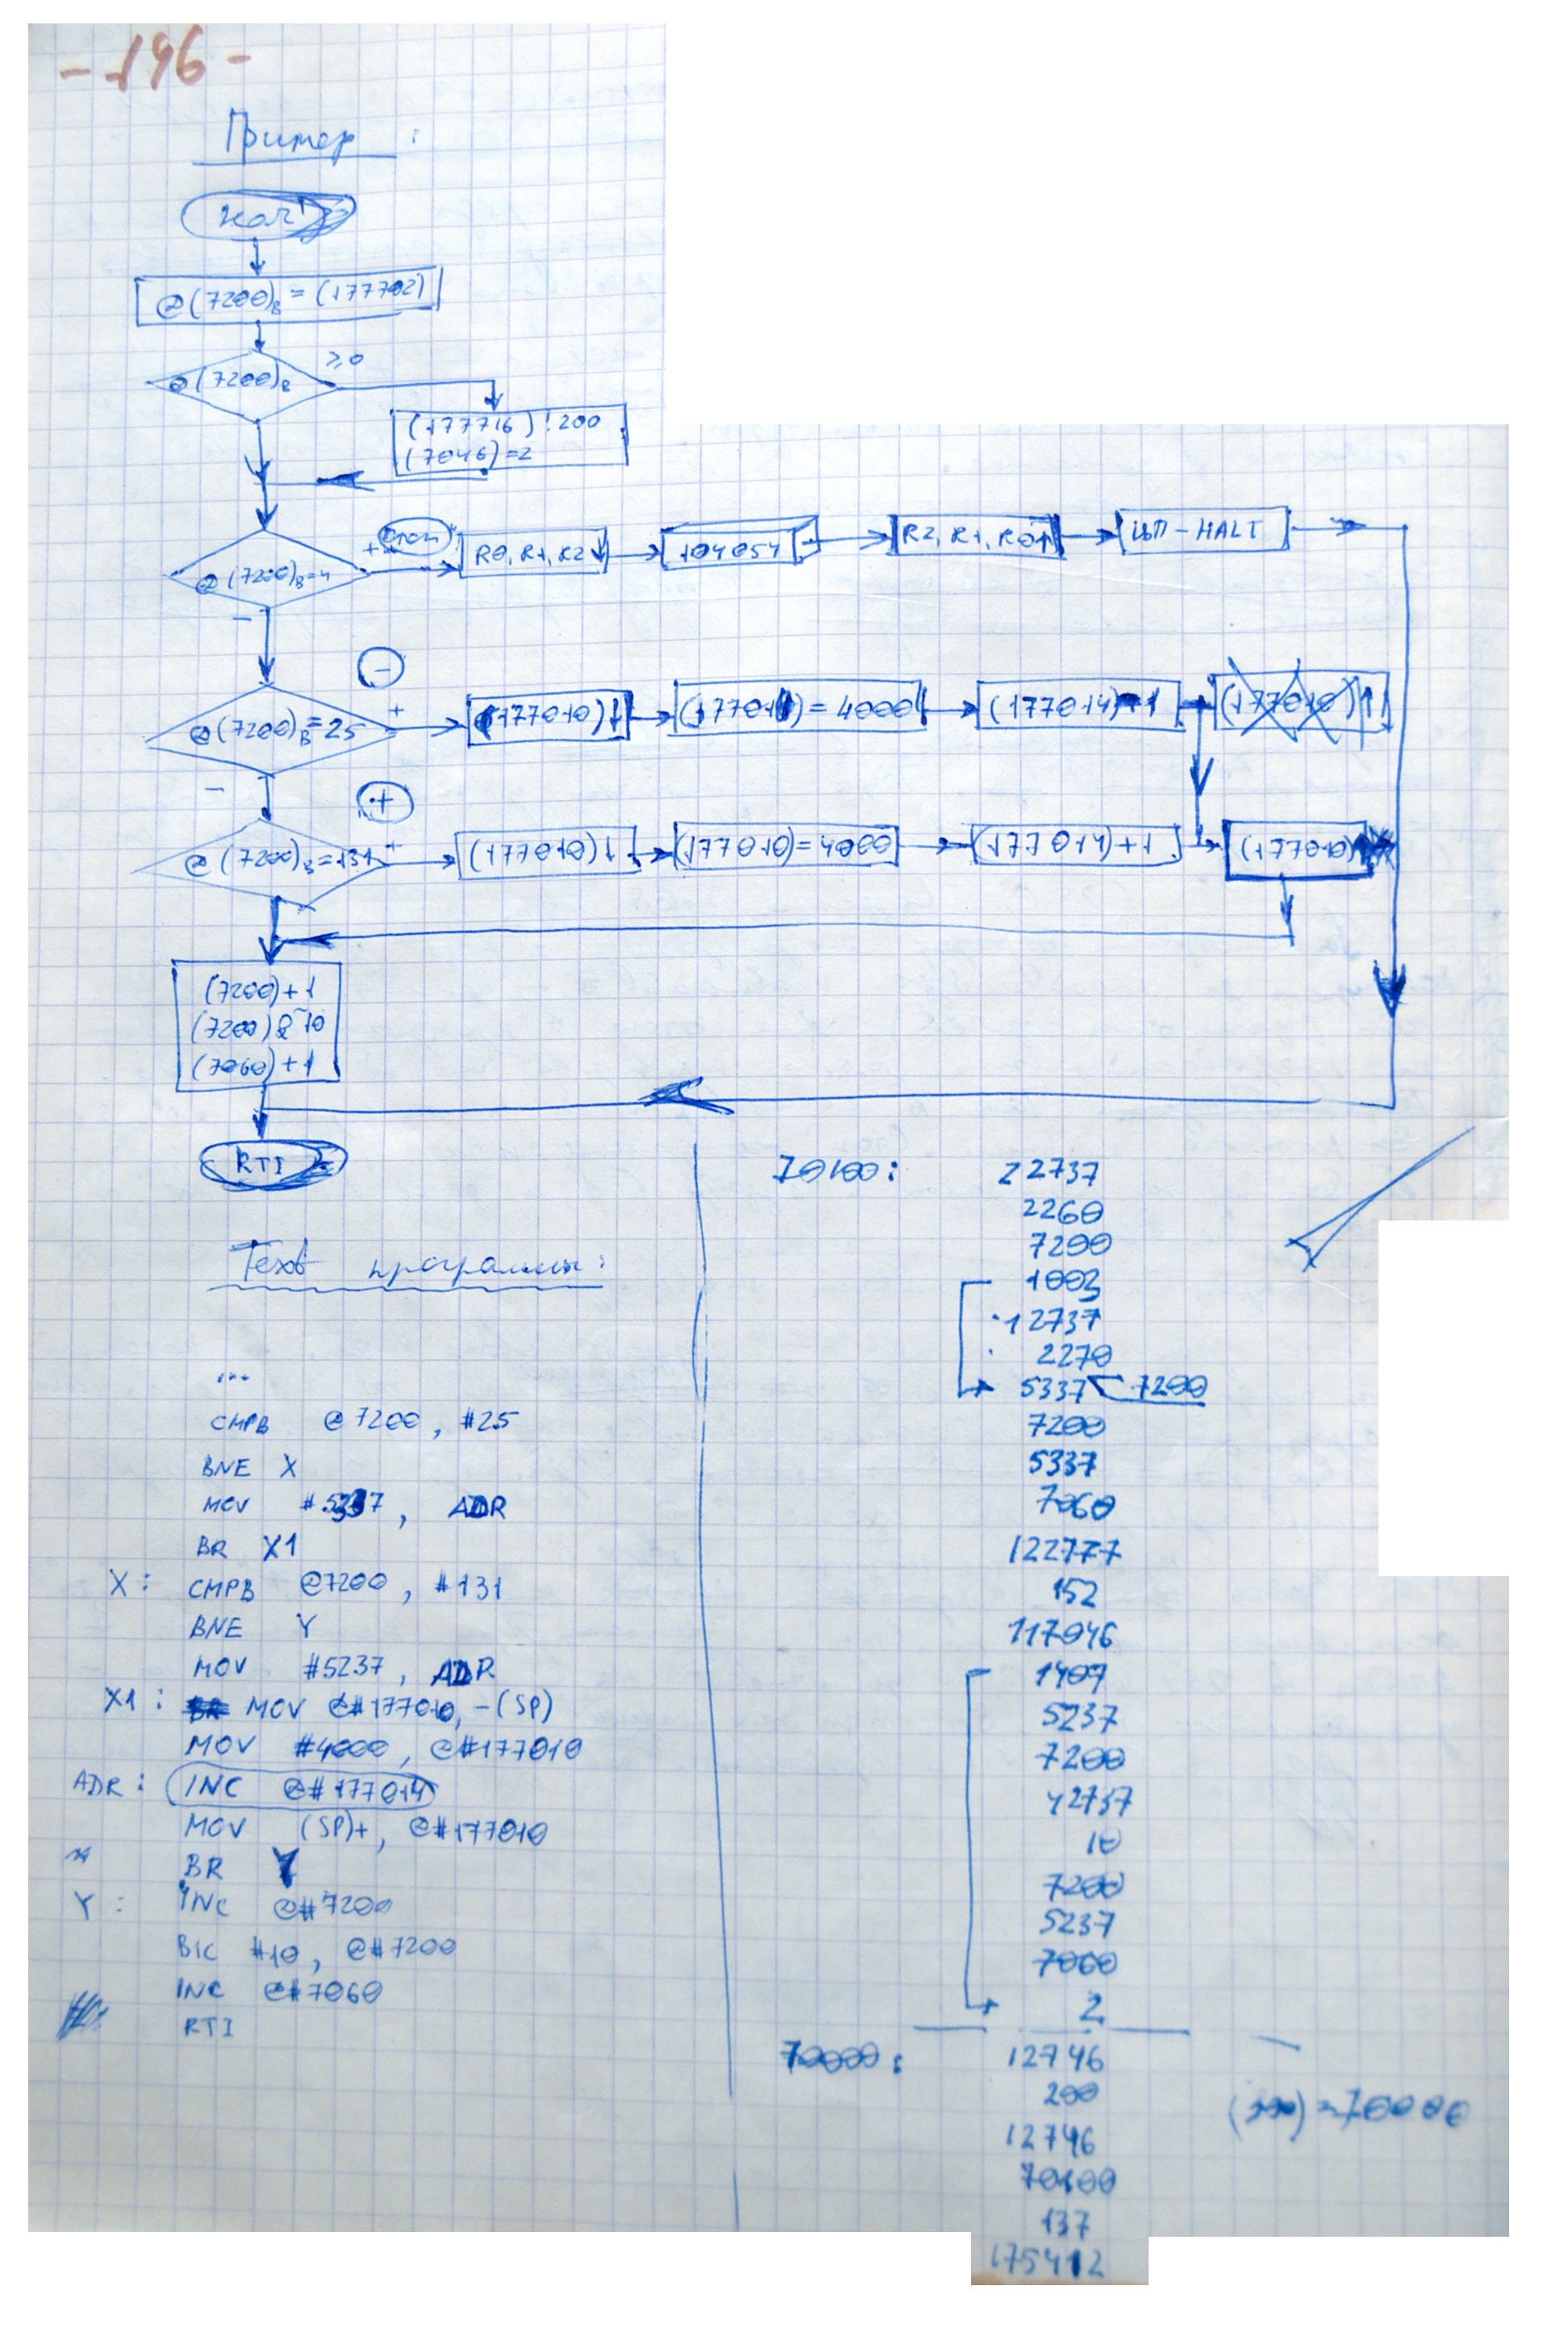 - 146 -
Пример :
нач
@(7200)в = (177702)
@(7200)в
≥0
(177716) ! 200
(7046)=2
@(7200)в=4
+
Стоп
R0, R1, R2↓
104054
R2, R1, R0↑
ЦП-HALT
-
@(7200)в=25
-
+
(177010)↓
= 4000
(177014)-1
(177010)↑
-
@(7200)в=131
+
+
(177010)↓
(177010)=4000
(177014)+1
(177010)↑
(7200)+1
(7200)&~10
(7060)+1
RTI
Text программы:
...
CMPB @7200, #25
BNE X
MOV #5337, ADR
BR X1
X: CMPB @7200, #131
BNE Y
MOV #5237, ADR
X1: MOV @#177010, -(SP)
MOV #4000, @#177010
ADR: INC @#177014
MOV (SP)+, @#177010
BR Y
Y: INC @#7200
BIC #10, @#7200
INC @#7060
RTI
70100: 22737
2260
7200
1003
12737
2270
5337 7200
7200
5337
7060
122777
152
117046
1407
5237
7200
42737
10
7200
5237
7060
2
70000: 12746
200
12746
70100
137
175412
= 70000